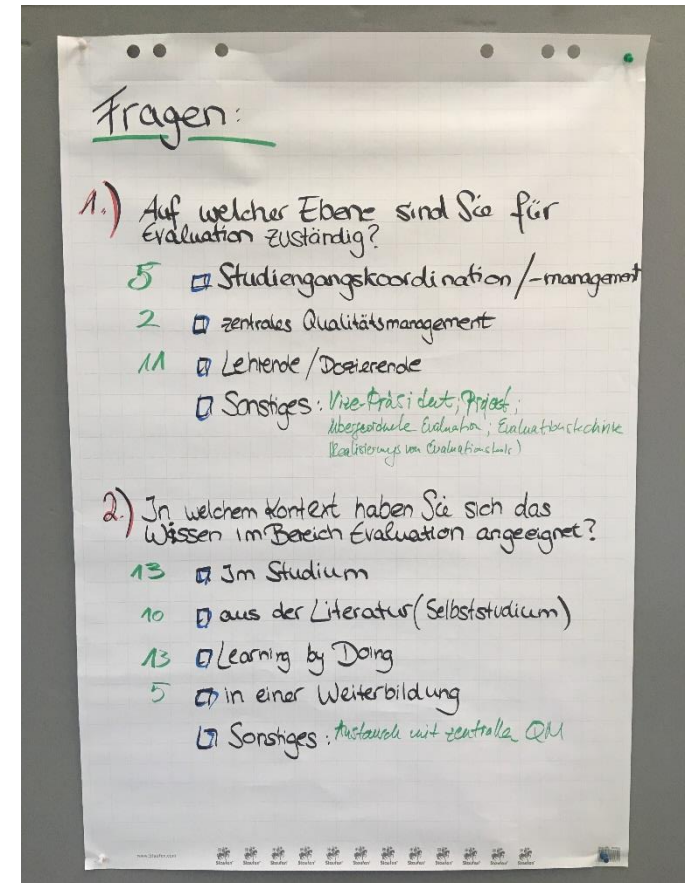 Fragen:
1.) Auf welcher Ebene sind Sie für
Evaluation zuständig?
5 Studiengangskoordination/-management
2 zentrales Qualitätsmanagement
11 Lehrende/Dozierende
Sonstiges: Vize-Präsident; Projekt;
übergeordnete Evaluation; Evaluationstechnik
Realisierung von Evaluationstools)
2.) In welchem Kontext haben Sie sich das
Wissen im Bereich Evaluation angeeignet?
13 Im Studium
10 aus der Literatur (Selbststudium)
13 Learning by Doing
5 in einer Weiterbildung
Sonstiges: Austausch mit zentraler QM
www.staufen.com Staufen Staufen Staufen Staufen Staufen Staufen Staufen Staufen Staufen Staufen Staufen Staufen